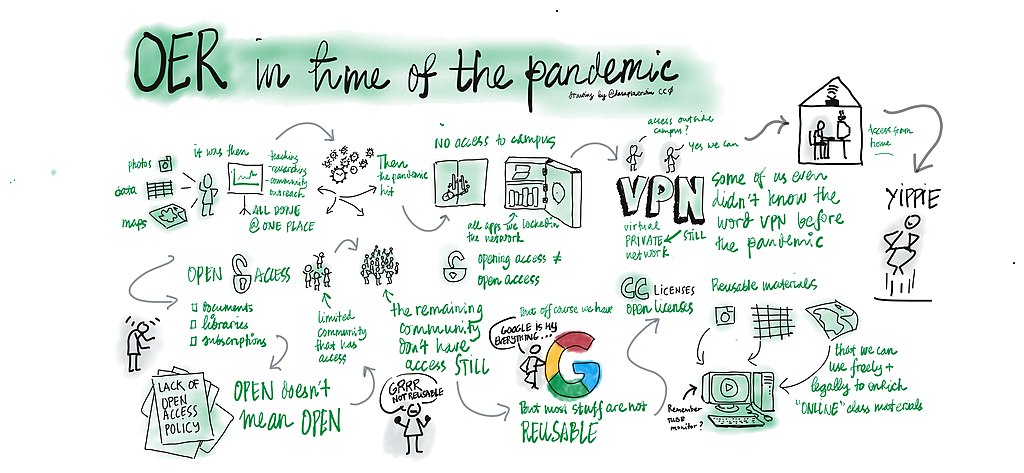 OER in time of the pandemic
drawing by @dasaptaerwin CC0
photos
data
maps
it was then
- teaching
- researching
- community
outreach
ALL DONE
@ ONE PLACE
Then
the pandemic
hit
NO ACCESS to CAMPUS
all apps we locked in
the network
access outside
campus?
yes we can
VPN
virtual
PRIVATE
network
STILL
some of us even
didn't know the
word VPN before
the pandemic
Access from
home
YIPPIE
OPEN ACCESS
documents
libraries
subscriptions
limited
community
that has
access
the remaining
community
don't have
access STILL
opening access ≠
open access
CC LICENSES
open licenses
Reusable materials
LACK OF
OPEN
ACCESS
POLICY
OPEN doesn't
mean OPEN
GRRR
NOT REUSABLE
But off course we have
GOOGLE IS MY
EVERYTHING...
G
But most stuff are not
REUSABLE
Remember
TUBE
monitor?
that we can
use freely +
legally to enrich
"ONLINE" class materials